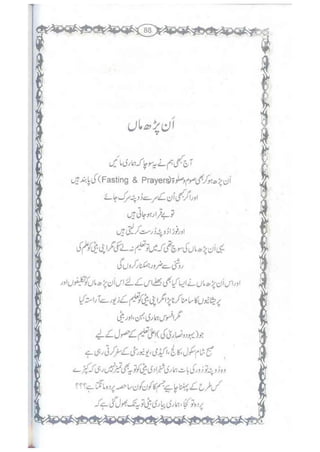 88
اَن پڑھ ماں
آج کبھی ہم نے یہ سوچا کہ ہماری مائیں
اَن پڑھ ہو کر بھی صوم و صلوٰۃ (Fasting & Prayers) کی پابند ہیں
اور اگر کبھی اُن کے سر سے دوپٹہ سرک جائے
تو بے قرار ہو جاتی ہیں
اور فوراً دوپٹہ درست کر لیتی ہیں
یہی اَن پڑھ ماں کی سوچ تھی کہ میں تو تعلیم نہ لے سکی مگر اپنی بیٹی کو علم کی
روشنی سے ضرور ہمکنار کروں گی
اور اس اَن پڑھ ماں نے ایسا کیا بھی بھلے اس کے لئے اس اَن پڑھ ماں کو تکلیفوں اور
پریشانیوں کا سامنا کرنا پڑا مگر اپنی بیٹی کو تعلیم کے زیور سے آراستہ کیا
مگر افسوس ہماری بہن، اور بیٹی
جو (یہود و نصاریٰ کی) اعلیٰ تعلیم کے حصول کے لیے
صبح شام سکول، کالج، اکیڈمی، یونیورسٹی کے سفر کرتی رہی ہے
وہ دوپٹہ تو دُور کی بات ہماری شہزادی بیٹی کو تو یہ بھی تمیز نہیں رہی کہ کپڑے
کس طرح کے پہننا چاہیے جسم کا کون کون سا حصہ پردہ مانگتا ہے؟؟؟
پردہ تو کجا، ہماری پیاری بیٹی تو یہ تک بھول گئی ہے کہ